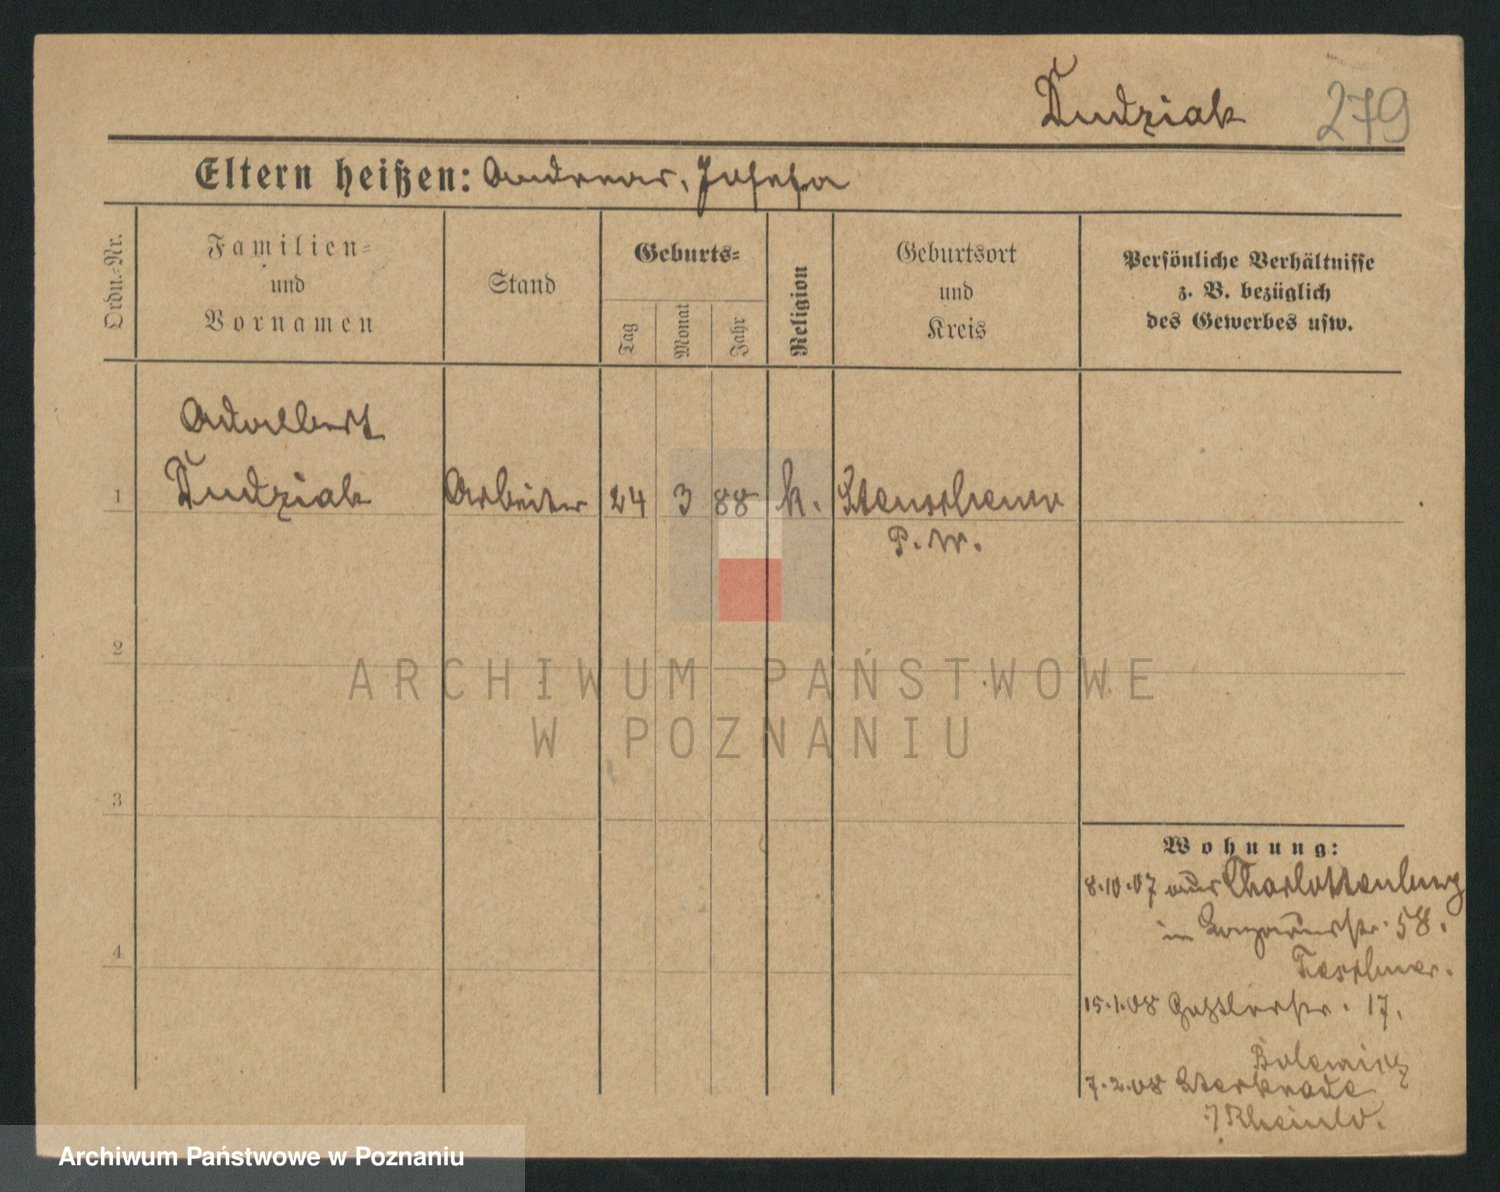 Dudziak 279
Eltern heißen: Andreas, Josefa
Ordn.-Nr.
Familien-
und
Vornamen
Stand
Geburts-
Tag
Monat
Jahr
Religion
Geburtsort
und
Kreis
Persönliche Verhältnisse
z. B. bezüglich
des Gewerbes usw.
Adalbert
1 Dudziak Arbeiter 24 3 88 k.
P. W.
2
3
4
ARCHIWUM PAŃSTWOWE
W POZNANIU
Wohnung:
8.10.07 aus Charlottenburg
in 58.
15.1.08 17.
7.2.08 Sterkrade
i/Rheinld.
Archiwum Państwowe w Poznaniu